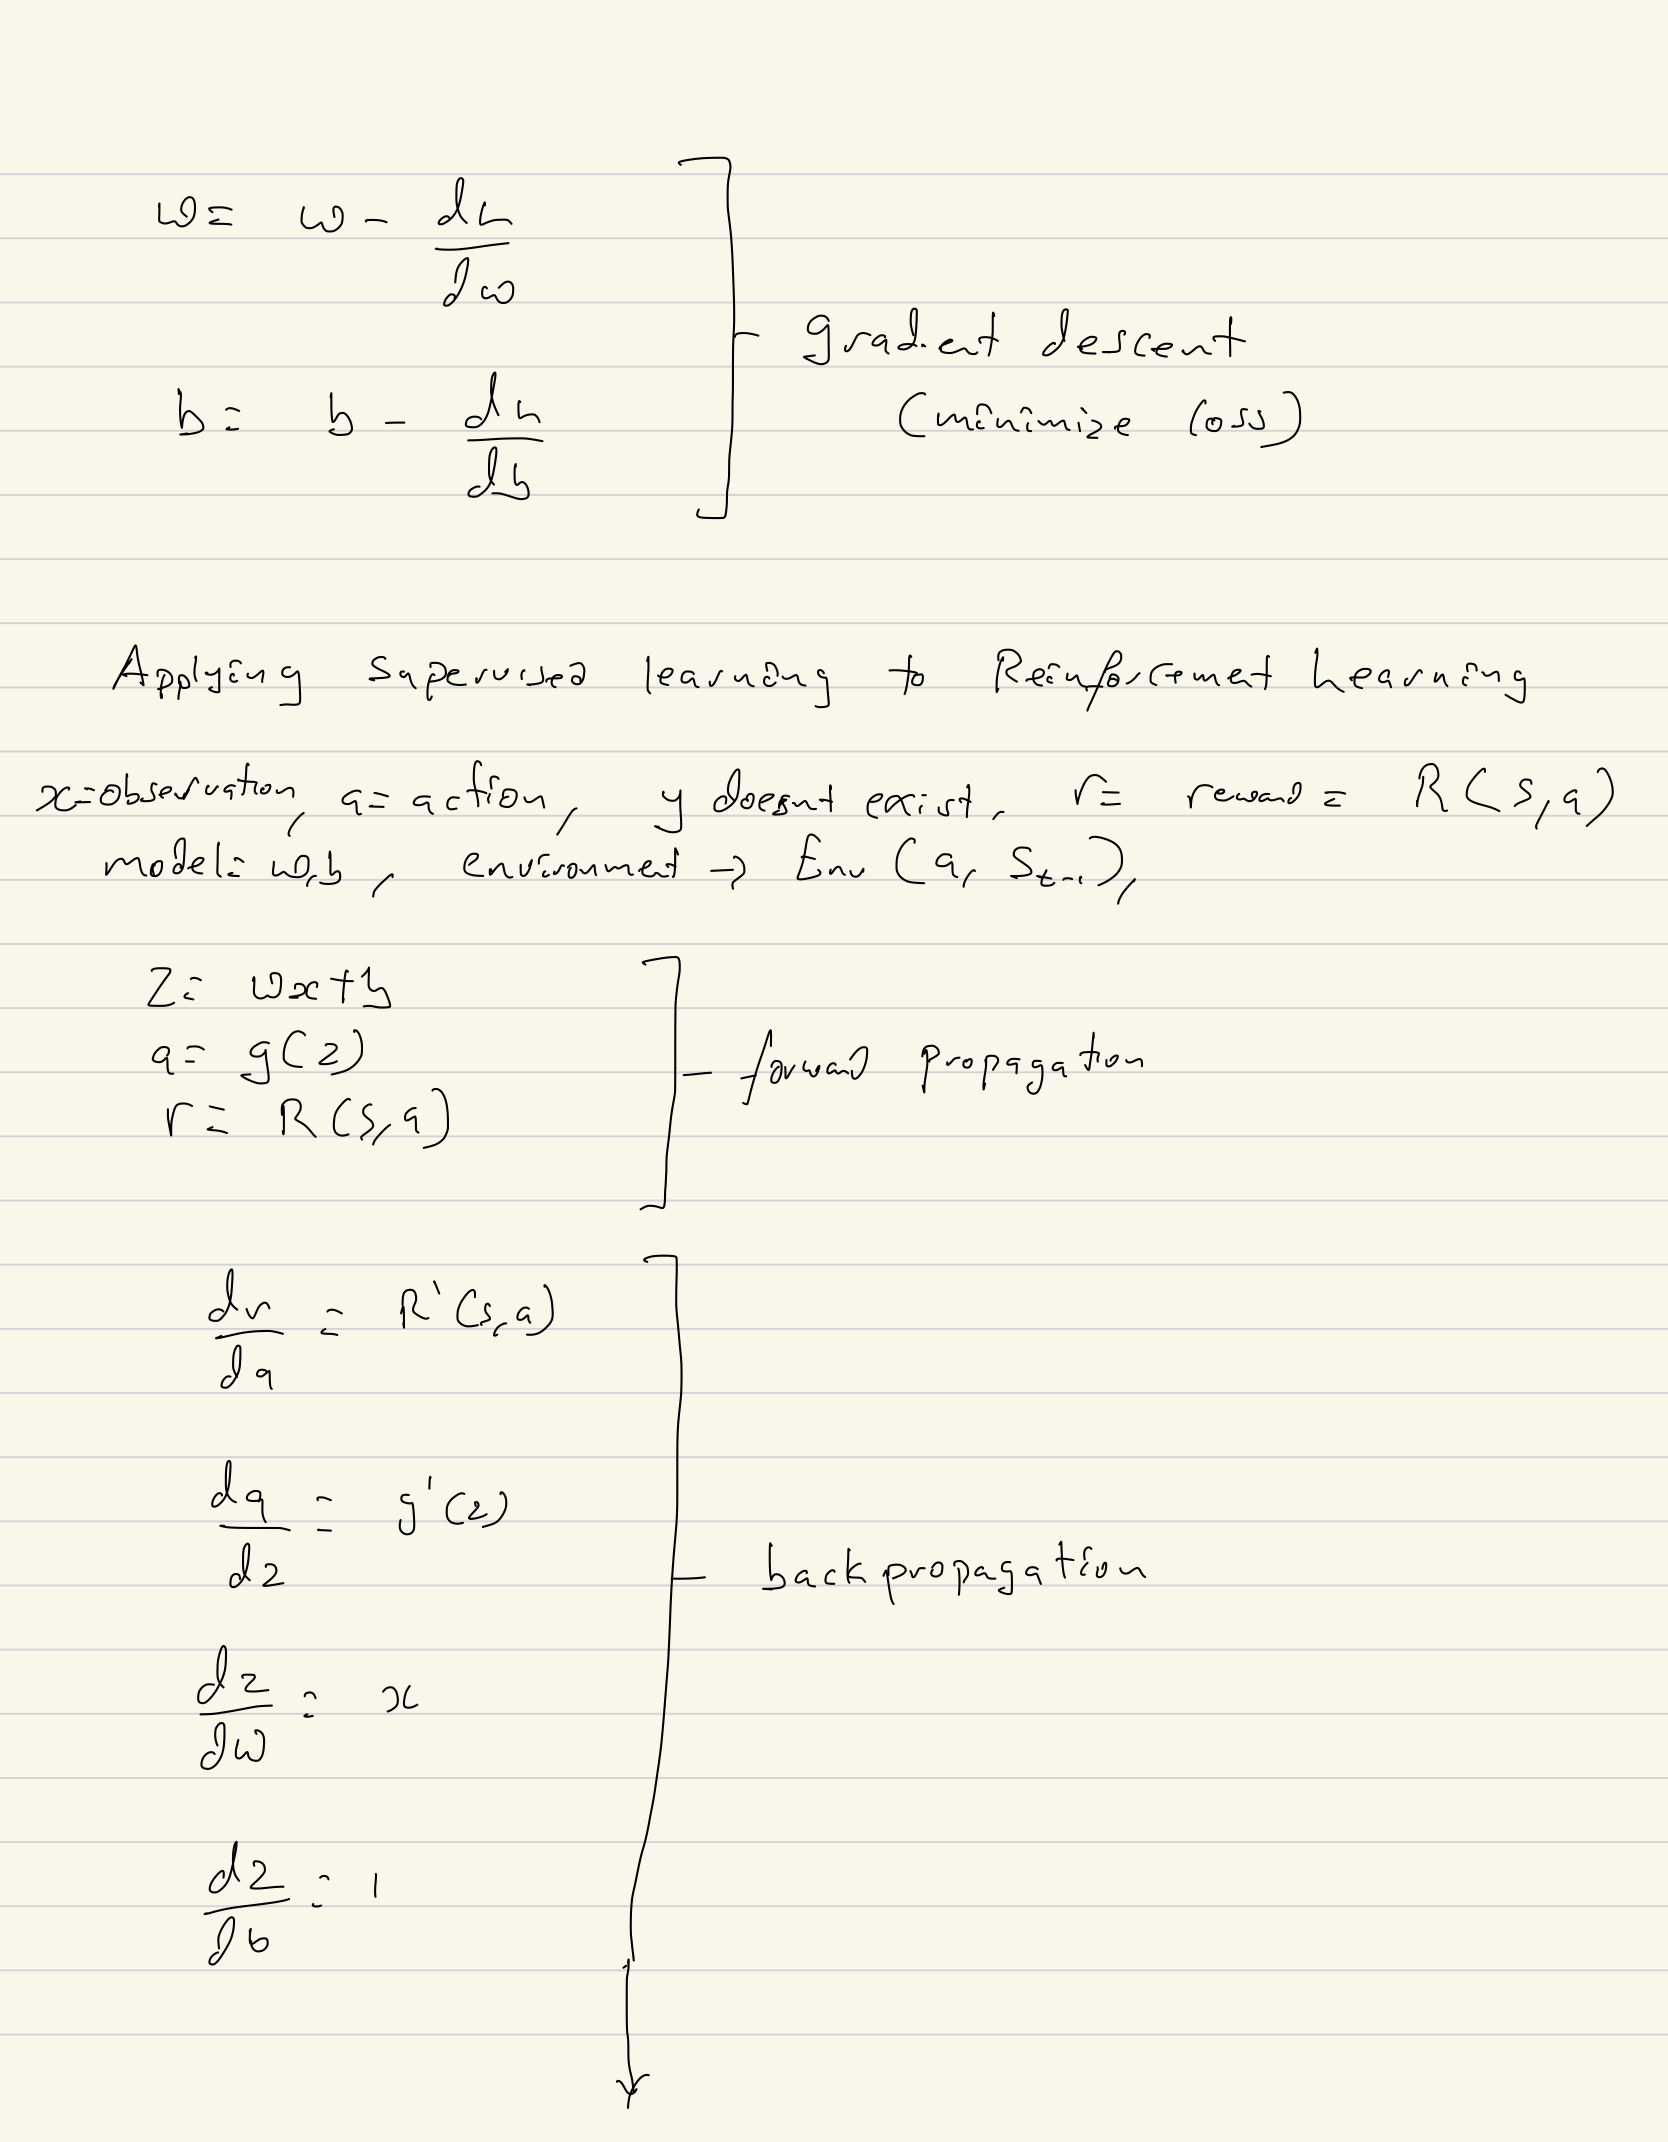 w = w - dL/dw
gradient descent
(minimize loss)
b = b - dL/db
Applying Supervised learning to Reinforcement Learning
x=observation, a= action, y doesnt exist, r= reward = R(s,a)
model= w,b, environment → Env (a, S_t-1),
Z= wx+b
a= g(z)
forward propagation
r= R(s,a)
dr/da = R'(s,a)
da/dz = g'(z)
backpropagation
dz/dw = x
dz/db = 1